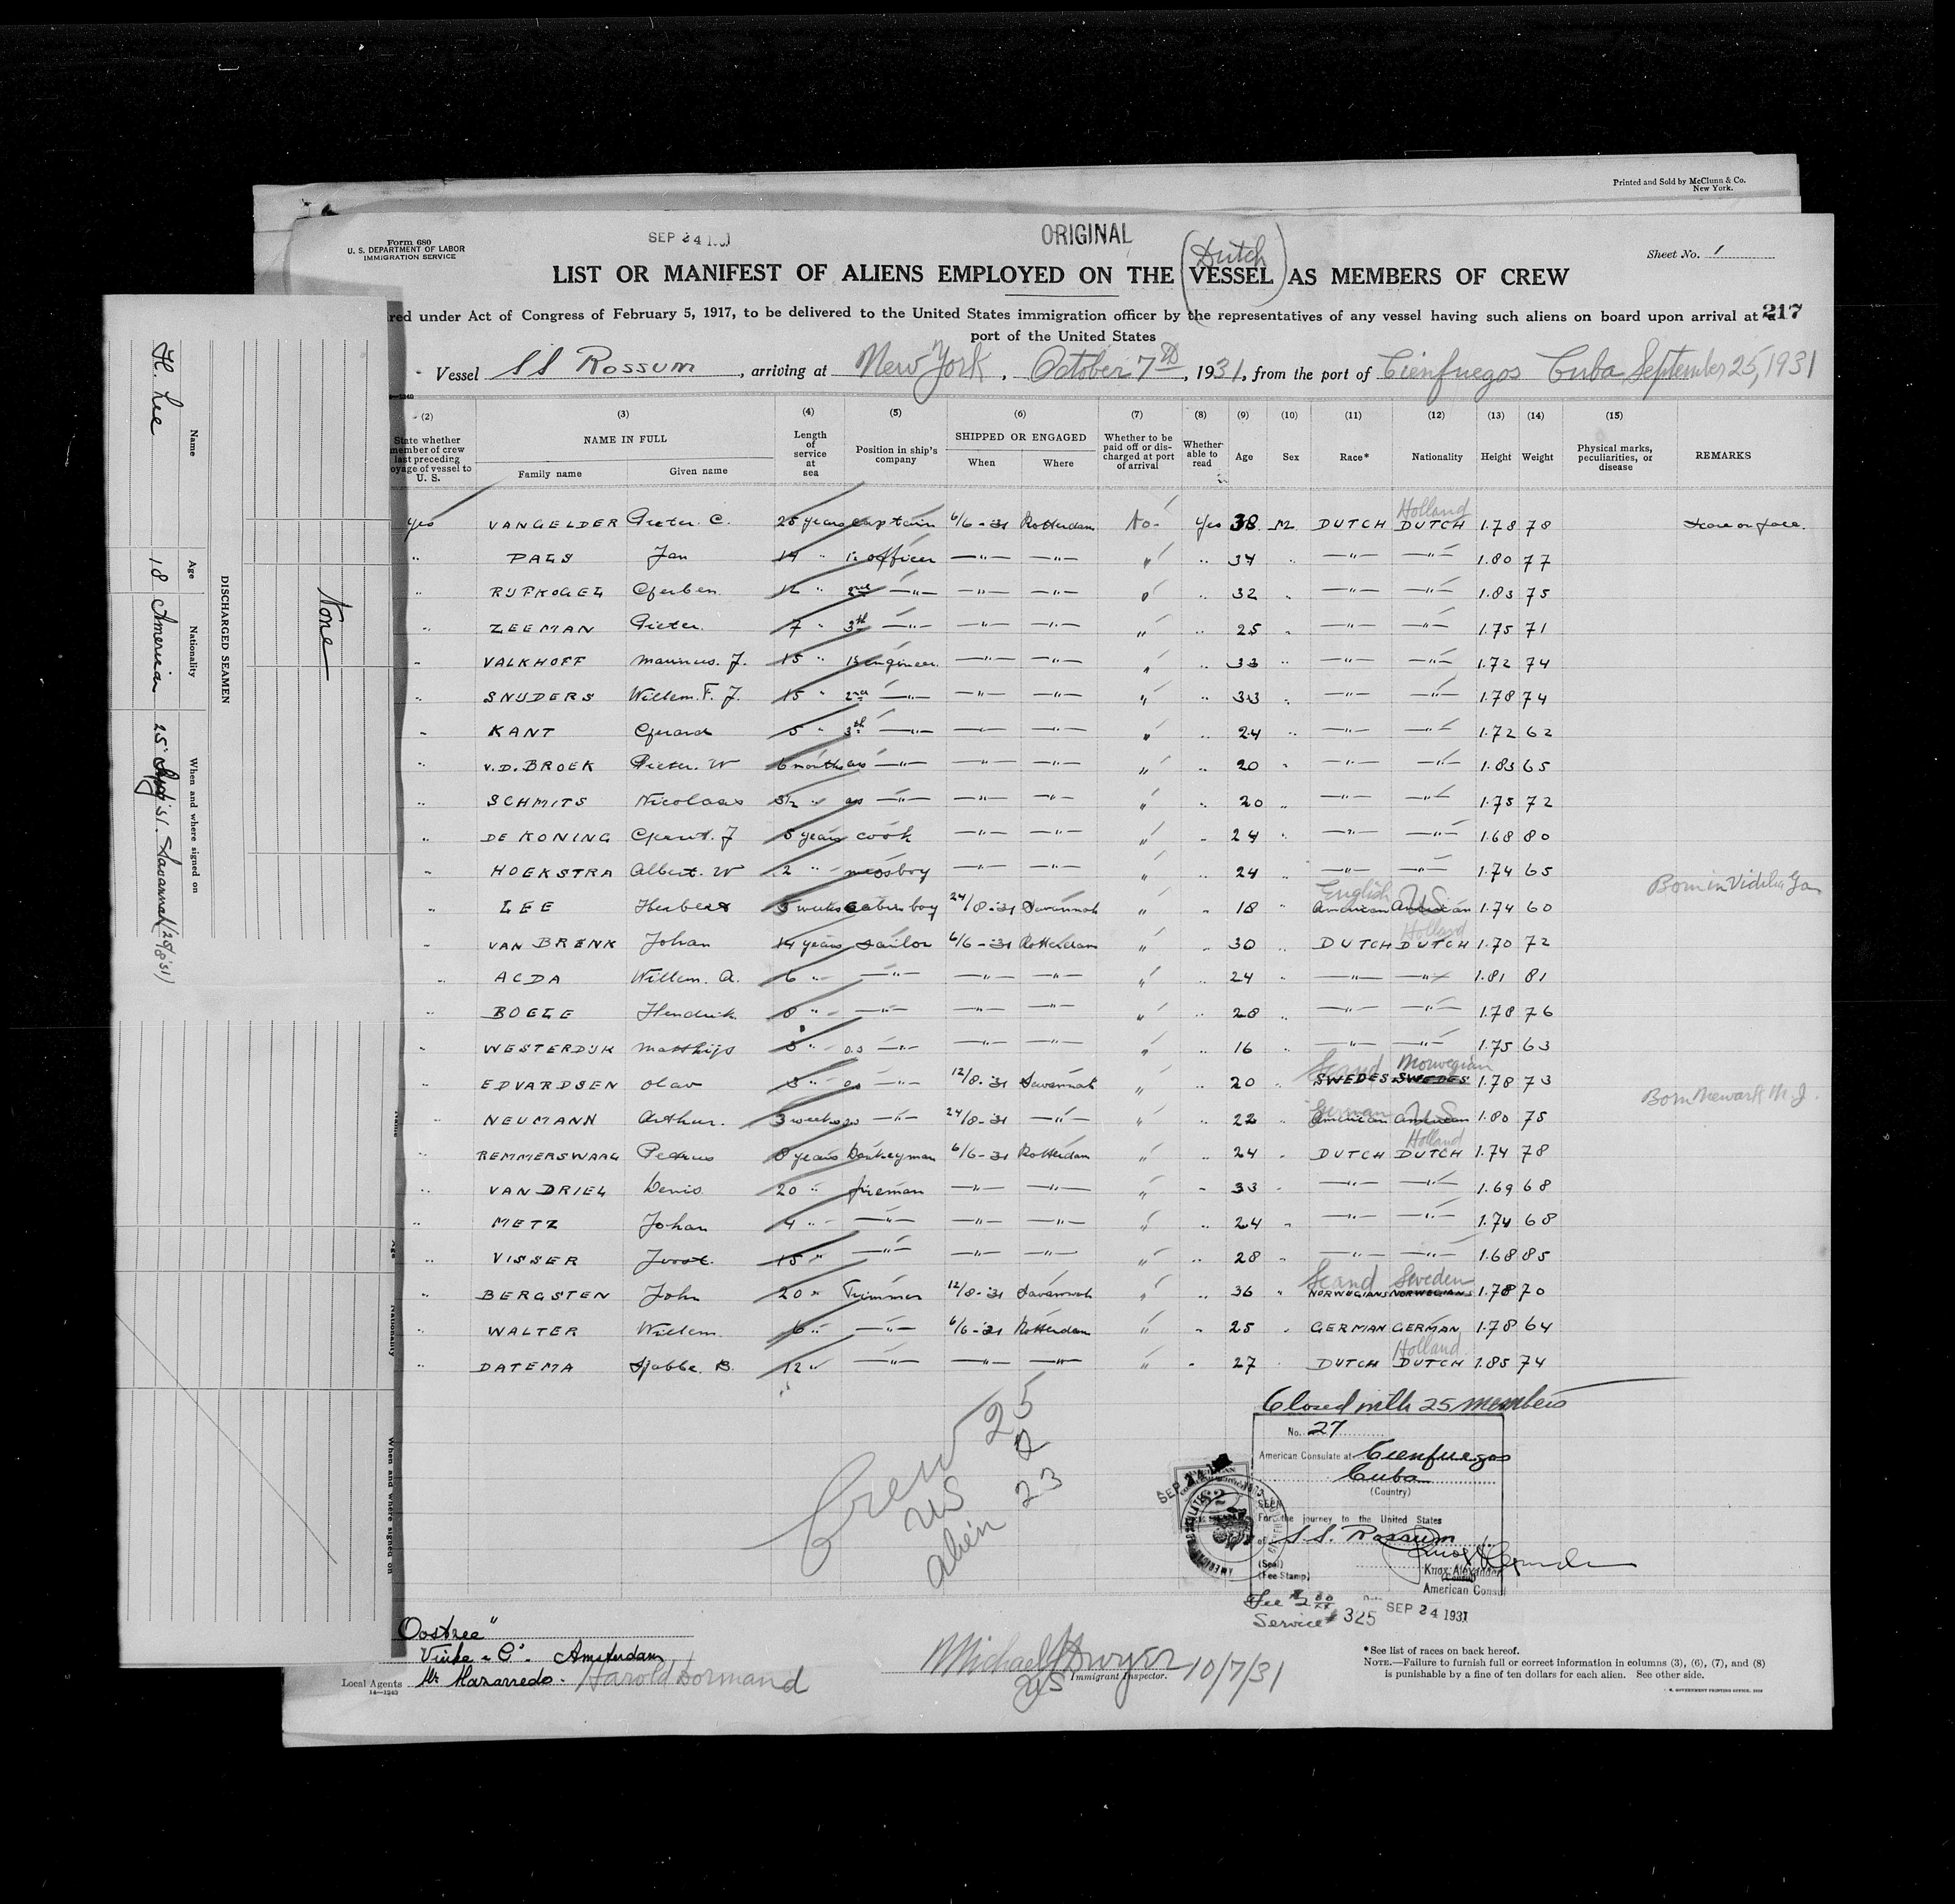 Printed and Sold by McClunn & Co.
New York.
Form 680
U. S. DEPARTMENT OF LABOR
IMMIGRATION SERVICE
SEP 24
ORIGINAL
Dutch
Sheet No. 1
LIST OR MANIFEST OF ALIENS EMPLOYED ON THE VESSEL AS MEMBERS OF CREW
red under Act of Congress of February 5, 1917, to be delivered to the United States immigration officer by the representatives of any vessel having such aliens on board upon arrival at a 217
port of the United States
Vessel SS Rossum, arriving at New York, October 7th, 1931, from the port of Cienfuegos Cuba, September 25, 1931
(2) (3) (4) (5) (6) (7) (8) (9) (10) (11) (12) (13) (14) (15)
State whether member of crew last preceding voyage of vessel to U. S.
NAME IN FULL
Family name Given name
Length of service at sea
Position in ship's company
SHIPPED OR ENGAGED
When Where
Whether to be paid off or discharged at port of arrival
Whether able to read
Age Sex Race* Nationality Height Weight
Physical marks, peculiarities, or disease
REMARKS
Holland
Yes VANGELDER Pieter. C. 25 years captain 6/6-31 Rotterdam No- Yes 38 M DUTCH DUTCH 1.78 78
" PALS Jan 14 " 1e officer —"— —"— " " 34 " —"— —"— 1.80 77
" RIJFKOGEL Gerben 12 " 2nd —"— —"— —"— " " 32 " —"— —"— 1.83 75
" ZEEMAN Pieter. 7 " 3th —"— —"— —"— " " 25 " —"— —"— 1.75 71
" VALKHOFF Marinus. J. 15 " 1e engineer —"— —"— " " 33 " —"— —"— 1.72 74
" SNIJDERS Willem. F. J. 15 " 2nd —"— —"— —"— " " 33 " —"— —"— 1.78 74
" KANT Gerard 5 " 3th —"— —"— —"— " " 24 " —"— —"— 1.72 62
" V.D. BROEK Pieter. W 6 months ass —"— —"— —"— " " 20 " —"— —"— 1.83 65
" SCHMITS Nicolaas 3½ " ass —"— —"— —"— " " 20 " —"— —"— 1.75 72
" DE KONING Gerrit. J 5 years cook —"— —"— " " 24 " —"— —"— 1.68 80
" HOEKSTRA Albert. W 2 " messboy —"— —"— " " 24 " —"— —"— 1.74 65
English U.S. Born in Vidalia Ga
" LEE Herbert 3 weeks cabin boy 24/8-31 Savannah " " 18 " American American 1.74 60
Holland
" VAN BRENK Johan 14 years sailor 6/6-31 Rotterdam " " 30 " DUTCH DUTCH 1.70 72
" ACDA Willem. A. 6 " —"— —"— —"— " " 24 " —"— —"— 1.81 81
" BOELE Hendrik 8 " —"— —"— —"— " " 28 " —"— —"— 1.78 76
" WESTERDIJK Matthijs 3 " o.s —"— —"— —"— " " 16 " —"— —"— 1.75 63
Scand Norwegian
" EDVARDSEN Olav 3 " o.s —"— 12/8-31 Savannah " " 20 " SWEDES SWEDES 1.78 73
German U S Born Newark N.J.
" NEUMANN Arthur. 3 weeks o.s —"— 24/8-31 —"— " " 22 " American American 1.80 75
Holland
" REMMERSWAAL Petrus 8 years Donkeyman 6/6-31 Rotterdam " " 24 " DUTCH DUTCH 1.74 78
" VAN DRIEL Denis 20 " fireman —"— —"— " " 33 " —"— —"— 1.69 68
" METZ Johan 4 " —"— —"— —"— " " 24 " —"— —"— 1.74 68
" VISSER Joost 15 " —"— —"— —"— " " 28 " —"— —"— 1.68 85
Scand Sweden
" BERGSTEN John 20 " Trimmer 12/8-31 Savannah " " 36 " NORWEGIANS NORWEGIANS 1.78 70
" WALTER Willem 6 " —"— 6/6-31 Rotterdam " " 25 " GERMAN GERMAN 1.78 64
Holland
" DATEMA Sjabbe. B. 12 " —"— —"— —"— " " 27 " DUTCH DUTCH 1.85 74
Crew 25
US 2
Alien 23
Closed with 25 members
No. 27
American Consulate at Cienfuegos
Cuba
(Country)
SEEN
For the journey to the United States
of S.S. Rossum
(Seal)
(Fee Stamp)
Knox Alexander
American Consul
Fee $2.00
Service # 325
SEP 24 1931
Oostzee"
Vinke & Co. Amsterdam
Local Agents Mr Mazarredo. Harold Dormand
14—1240
Michael J Dwyer 10/7/31
Immigrant Inspector.
US
*See list of races on back hereof.
NOTE.—Failure to furnish full or correct information in columns (3), (6), (7), and (8)
is punishable by a fine of ten dollars for each alien. See other side.
None
DISCHARGED SEAMEN
Name Age Nationality When and where signed on
H. Lee 18 American 25 Sept '31. Savannah (24/8'31)
Name Age Nationality When and where signed on